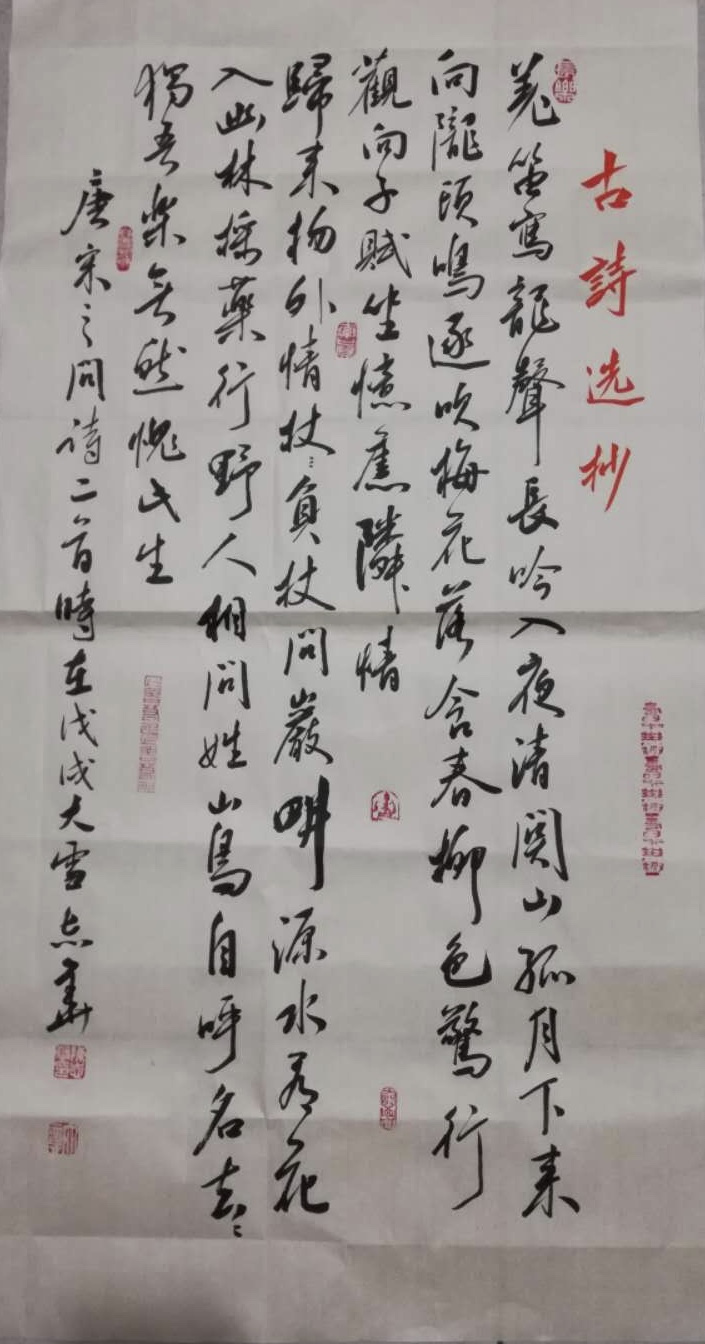 古詩选抄
羌笛寫龍聲長吟入夜清関山孤月下来
向隴頭鳴逐吹梅花落含春柳色驚行
觀向子賦坐憶舊隣情
歸来物外情杖〻負杖問巖畊源水看花
入幽林採藥行野人相問姓山鳥自呼名去〻
獨吾樂無然愧此生
唐宋之問诗二首時在戊戌大雪志華